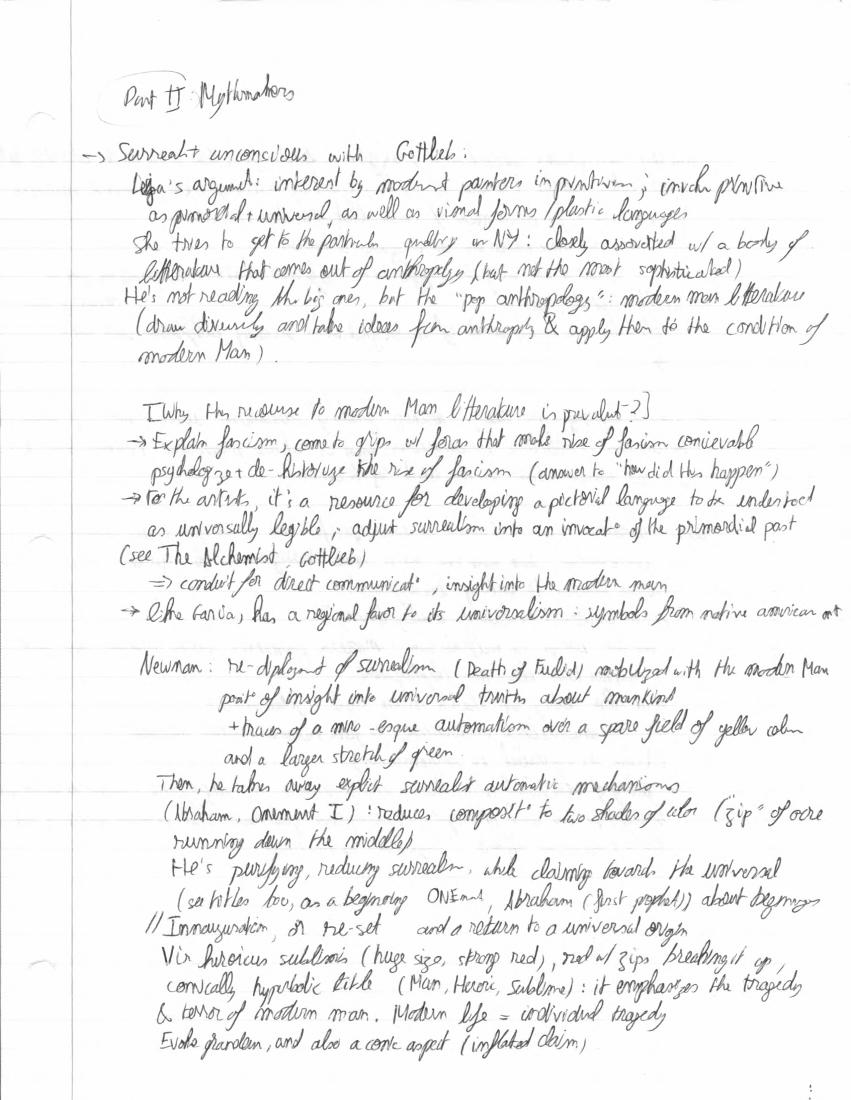 Part II: Mythmakers
→ Surrealist unconscious with Gottlieb:
argument: interest by modernist painters in primitivism; invoke primitive
as primordial + universal, as well as visual forms / plastic languages
She tries to get to the particular quality in NY: closely associated w/ a body of
litterature that comes out of anthropology (but not the most sophisticated)
He's not reading the big ones, but the "pop anthropology": modern man litterature
(draw diversily and take ideas from anthropoly & apply them to the condition of
modern Man).
[Why this recourse to modern Man litterature is prevalent?]
→ Explain fascism, come to grips w/ forces that make rise of fascism concievable
psychologize + de-historicize the rise of fascism (answer to "how did this happen")
→ For the artists, it's a resource for developing a pictorial language to be understood
as universally legible; adjust surrealism into an invocat° of the primordial past
(see The Alchemist, Gottlieb)
⇒ conduit for direct communicat°, insight into the modern man
→ like Garcia, has a regional favor to its universalism: symbols from native american art
Newman: re-deployment of surrealism (Death of Euclid) mobilized with the modern Man
point of insight into universal truths about mankind
+ traces of a miro-esque automatism over a spare field of yellow color
and a larger stretch of green.
Then, he takes away explicit surrealist automatic mechanisms
(Abraham, Onement I): reduces composit° to two shades of color ("zip" of ocre
running down the middle)
He's purifying, reducing surrealism, while claiming towards the universal
(see titles too, as a beginning ONEment, Abraham (first prophet)) about beginnings
// Innauguration, or re-set and a return to a universal origin
Vir heroicus sublimis (huge size, strong red), red w/ zips breaking it up,
comically hyperbolic title (Man, Heroic, Sublime): it emphasizes the tragedy
& terror of modern man. Modern life = individual tragedy
Evoke grandeur, and also a comic aspect (inflated claim)